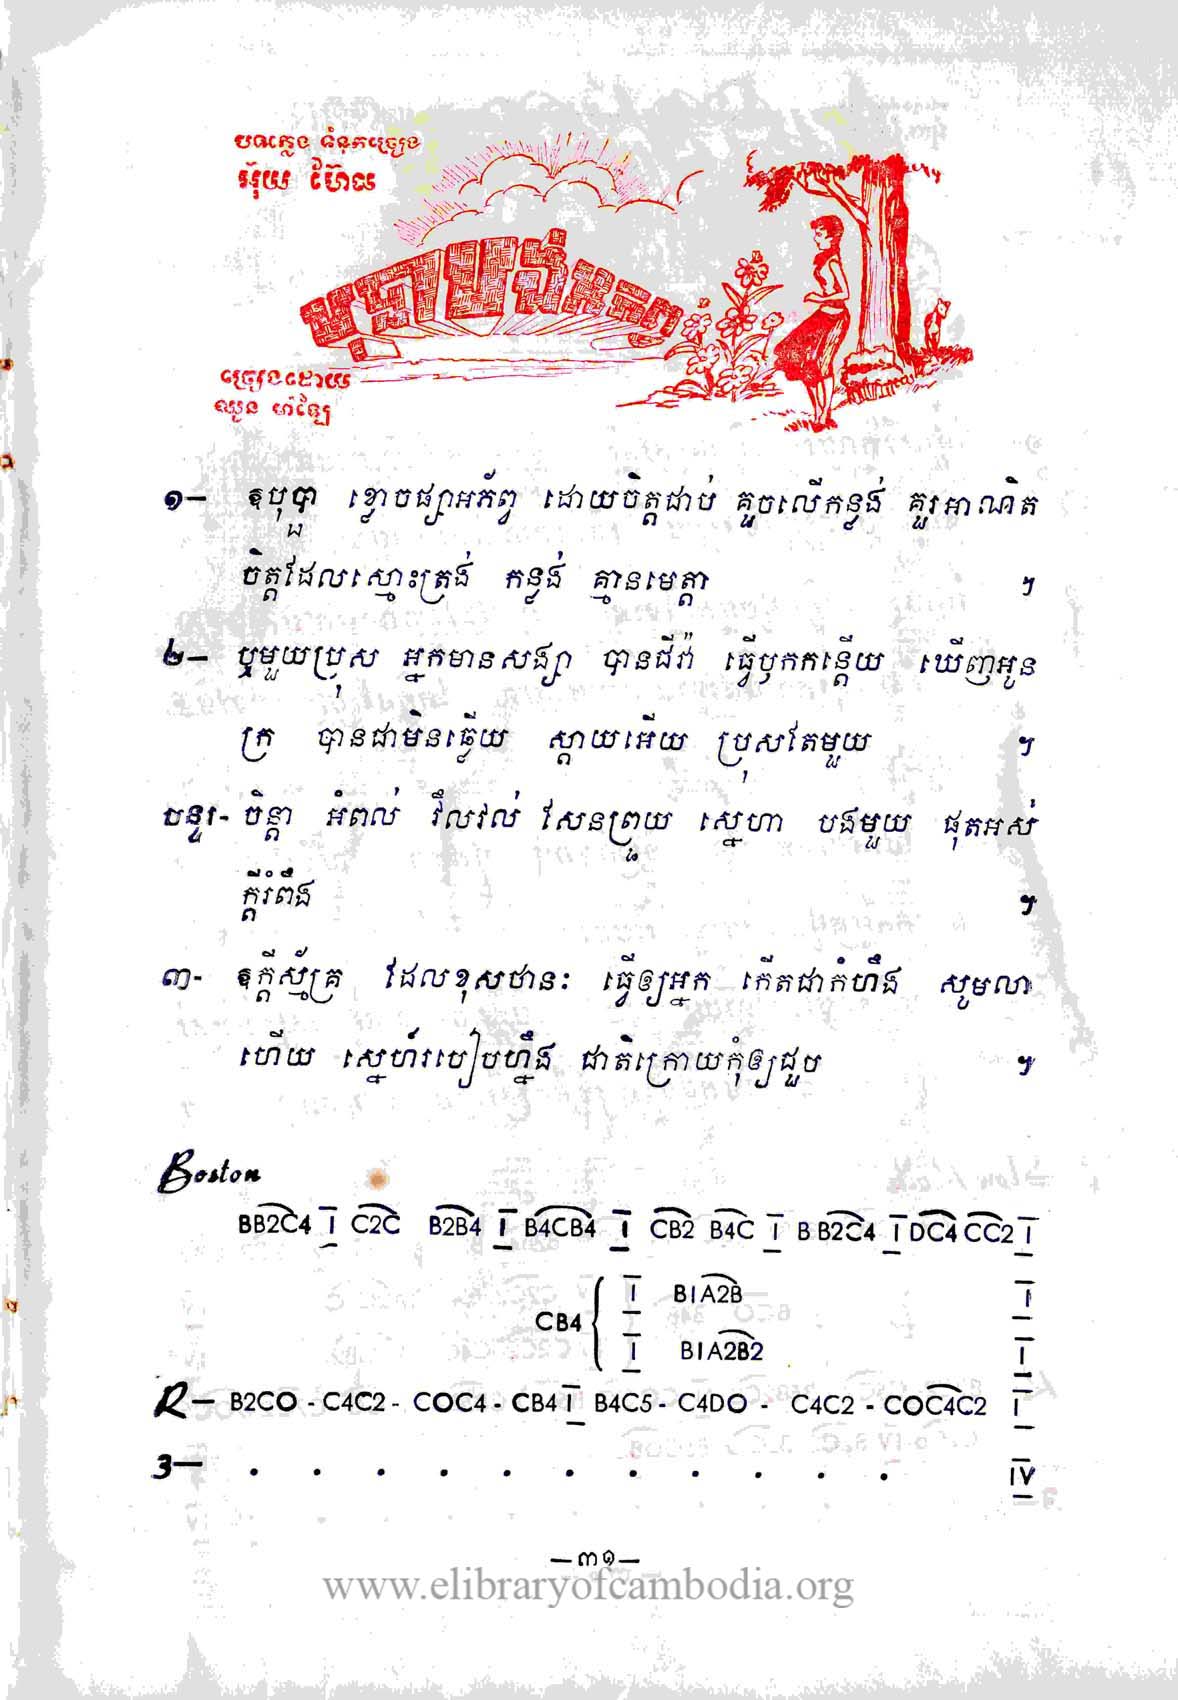 បទភ្លេង ទំនុកច្រៀង
អ៊ុយ ហ៊ែល
បុប្ផាបងអភ័ព្វ
ច្រៀងដោយ
ឈួន ម៉ាឡៃ
១— ឱបុប្ផា ខ្លោចផ្សាអភ័ព្វ ដោយចិត្តជាប់ គួចលើកន្លង់ គួរអាណិត
ចិត្តដែលស្មោះត្រង់ កន្លង់ គ្មានមេត្តា ។
២— ឬមួយប្រុស អ្នកមានសង្សា បានជីវ៉ា ធ្វើឫកកន្តើយ ឃើញអូន
ក្រ បានជាមិនធ្លើយ ស្តាយអើយ ប្រុសតែមួយ ។
បន្ទរ- ចិន្តា អំពល់ វឹលវល់ សែនព្រួយ ស្នេហា បងមួយ ផុតអស់
ក្តីរំពឹង ។
៣- ឧក្តីស្ម័គ្រ ដែលខុសឋានៈ ធ្វើឲ្យអ្នក កើតជាកំហឹង សូមលា
ហើយ ស្នេហ៍របៀបហ្នឹង ជាតិក្រោយកុំឲ្យជួប ។
Boston
BB2C4 I C2C B2B4 I B4CB4 I CB2 B4C I B B2C4 I DC4 CC2 I
CB4 { I BIA2B I
I BIA2B2 I
R— B2CO - C4C2 - COC4 - CB4 I B4C5 - C4DO - C4C2 - COC4C2 I
3— . . . . . . . . . . . IV
—៣១—
www.elibraryofcambodia.org